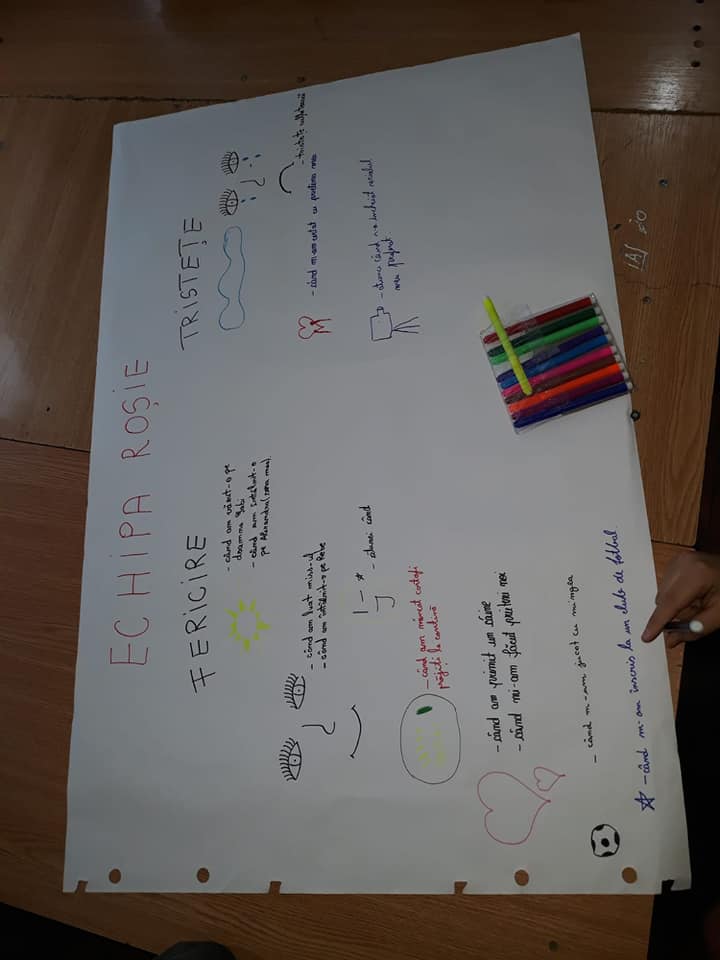 ECHIPA ROȘIE
FERICIRE
- când am văzut-o pe
doamna Gabi
- când am întâlnit-o
pe Alexandra (sora mea).
- când am luat miss-ul
- când am întâlnit-o pe Bebe
- atunci când
- când am mâncat cartofi
prăjiți la cantină
- când am primit un câine
- când mi-am făcut prieteni noi
- când m-am jucat cu mingea
- când m-am înscris la un club de fotbal.
TRISTEȚE
- tristețe sufletească
- când m-am certat cu prietena mea
- atunci când s-a încheiat serialul
meu preferat.